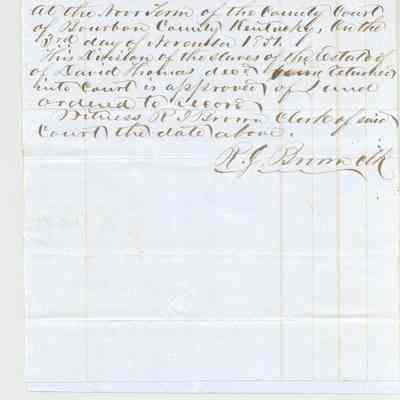 At the Nov Term of the County Court
of Bourbon County Kentucky, On the
3rd day of November 1851.
This Division of the slaves of the Estate of
of David Thomas decd returned
into Court is approved of and
ordered to record
Witness R J Brown Clerk of said
Court the date above.
R. J. Brown clk